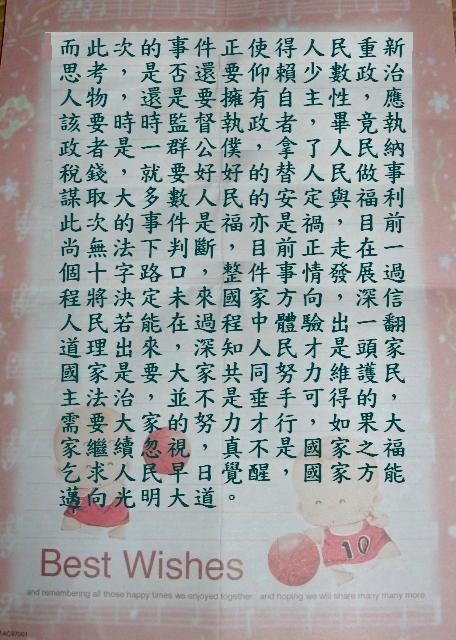 而此次的事件正使得人民重新
思考,是否還要仰賴少數政治
人物,還是要擁有自主性,應
該要時時監督執政者,畢竟執
政者是一群公僕,拿了人民納
稅錢,就要好好的替人民做事
謀取大多數人民的安定與福利
此次的事件是福亦是禍,目前
尚無法下判斷,目前正走在一
個十字路口,整件事情發展過
程將決定未來國家方向,深信
人民若能在過程中體驗出一翻
道理出來,深知人民才是頭家
國家是要大家共同努力維護民
主法治,並不是垂手可得的,
需要大家的努力才行,如果大
家繼績忽視,真不是國家之福
乞求人民早日覺醒,國家方能
邁向光明大道。
10
Best Wishes
and remembering all those happy times we enjoyed together and hoping we will share many many more